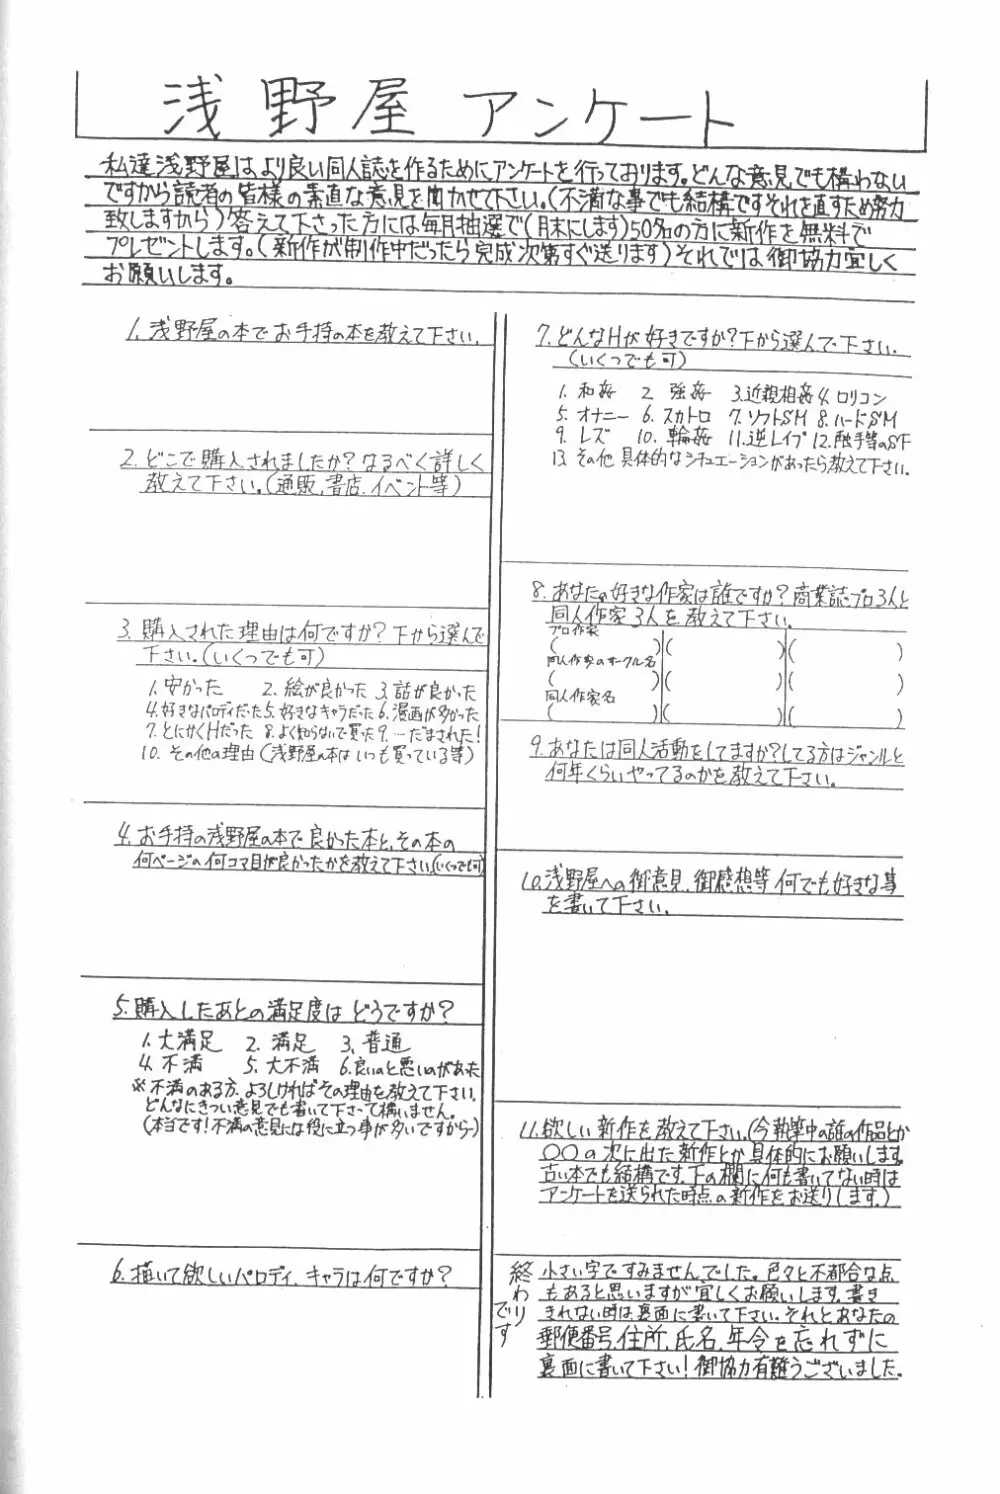 浅野屋 アンケート
私達浅野屋は、より良い同人誌を作るためにアンケートを行っております。どんな意見でも構わない
ですから読者の皆様の素直な意見を聞かせて下さい。(不満な事でも結構ですそれを直すため努力
致しますから)答えて下さった方には毎月抽選で(月末にします)50名の方に新作を無料で
プレゼントします。(新作が制作中だったら完成次第すぐ送ります)それでは御協力宜しく
お願いします。
1. 浅野屋の本でお手持の本を教えて下さい。
2. どこで購入されましたか?なるべく詳しく
教えて下さい。(通販、書店、イベント等)
3. 購入された理由は何ですか?下から選んで
下さい。(いくつでも可)
1. 安かった 2. 絵が良かった 3. 話が良かった
4. 好きなパロディだった 5. 好きなキャラだった 6. 漫画が多かった
7. とにかくHだった 8. よく知らないで買った 9. …だまされた!
10. その他の理由(浅野屋の本はいつも買っている等)
4. お手持の浅野屋の本で良かった本と、その本の
何ページの何コマ目が良かったかを教えて下さい。(いくつでも可)
5. 購入したあとの満足度はどうですか?
1. 大満足 2. 満足 3. 普通
4. 不満 5. 大不満 6. 良いのと悪いのがあった
※不満のある方、よろしければその理由を教えて下さい。
どんなにきつい意見でも書いて下さって構いません。
(本当です!不満の意見には役に立つ事が多いですから)
6. 描いて欲しいパロディ、キャラは何ですか?
7. どんなHが好きですか?下から選んで下さい。
(いくつでも可)
1. 和姦 2. 強姦 3. 近親相姦 4. ロリコン
5. オナニー 6. スカトロ 7. ソフトSM 8. ハードSM
9. レズ 10. 輪姦 11. 逆レイプ 12. 触手等のSF
13. その他 具体的なシチュエーションがあったら教えて下さい。
8. あなたの好きな作家は誰ですか?商業誌プロ3人と
同人作家3人を教えて下さい。
プロ作家
( )( )( )
同人作家のサークル名
( )( )( )
同人作家名
( )( )( )
9. あなたは同人活動をしてますか?してる方はジャンルと
何年くらいやってるのかを教えて下さい。
10. 浅野屋への御意見、御感想等、何でも好きな事
を書いて下さい。
11. 欲しい新作を教えて下さい。(今執筆中の誰の作品とか
〇〇の次に出た新作とか具体的にお願いします。
古い本でも結構です。下の欄に何も書いてない時は
アンケートを送られた時点の新作をお送りします。)
終わりです
小さい字ですみませんでした。色々と不都合な点
もあると思いますが宜しくお願いします。書き
きれない時は裏面に書いて下さい。それとあなたの
郵便番号、住所、氏名、年令を忘れずに
裏面に書いて下さい!御協力有難うございました。